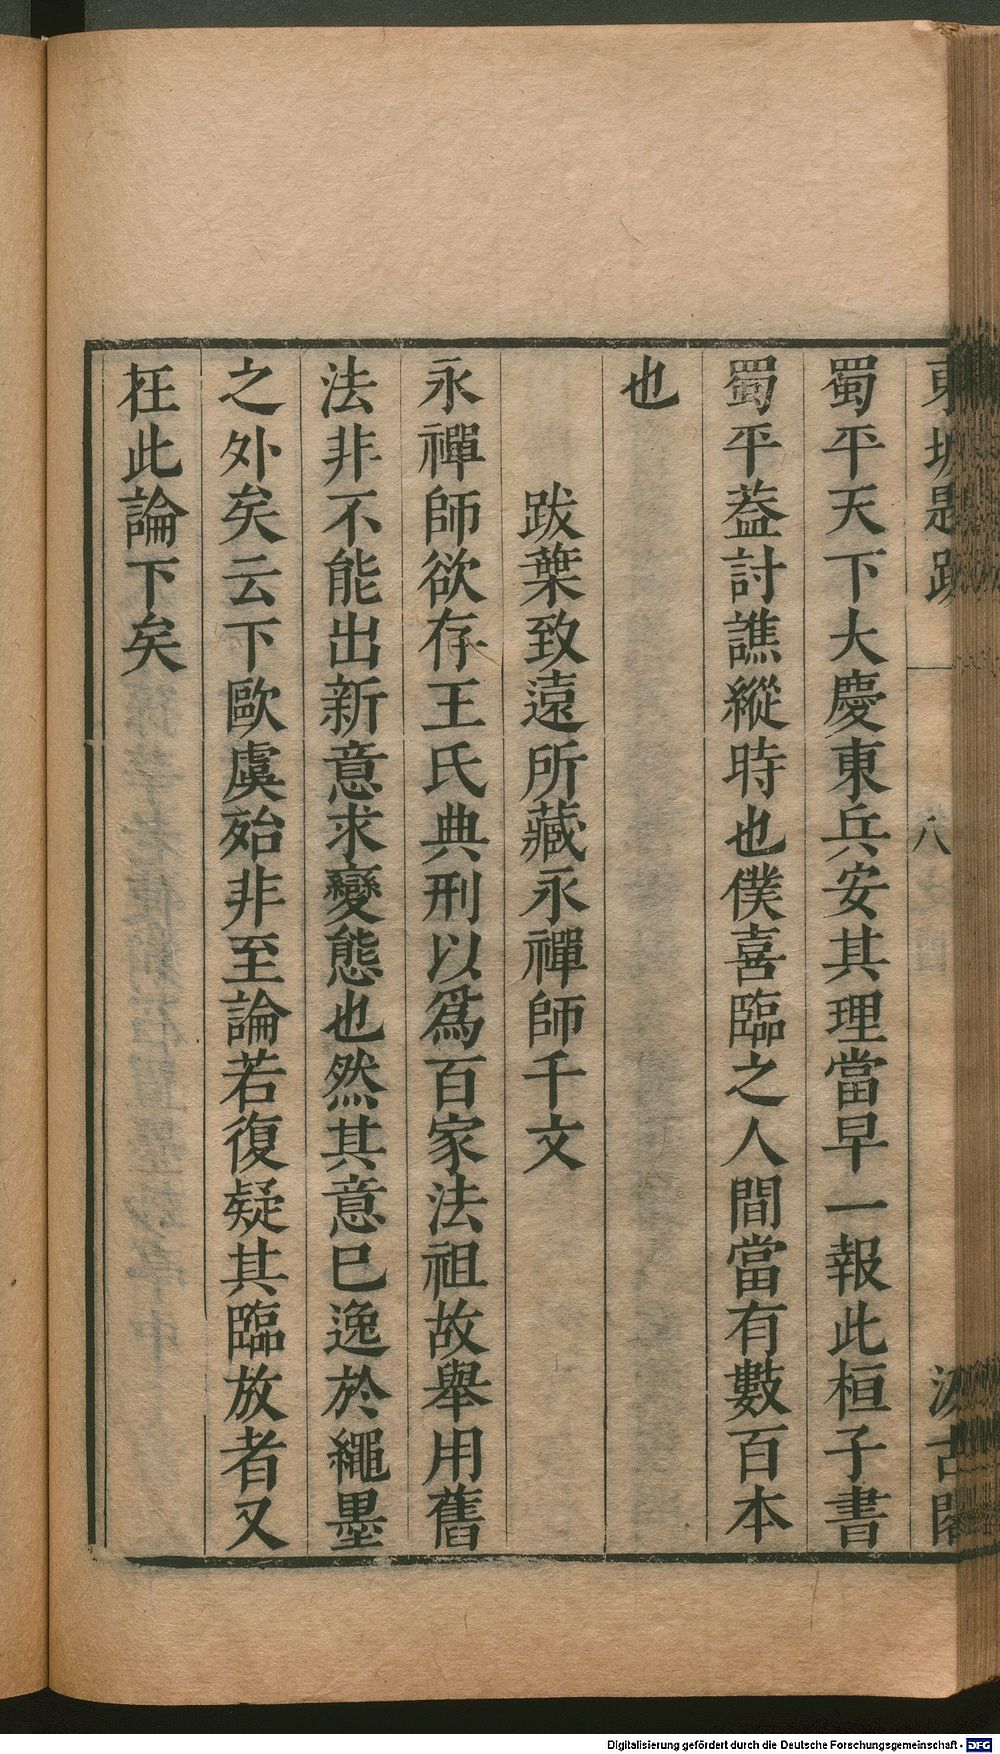 東坡題跋 八 汲古閣
蜀平天下大慶東兵安其理當早一報此桓子書
蜀平葢討譙縱時也僕喜臨之人間當有數百本
也
跋葉致遠所藏永禪師千文
永禪師欲存王氏典刑以爲百家法祖故舉用舊
法非不能出新意求變態也然其意已逸於繩墨
之外矣云下歐虞殆非至論若復疑其臨放者又
在此論下矣
Digitalisierung gefördert durch die Deutsche Forschungsgemeinschaft - DFG